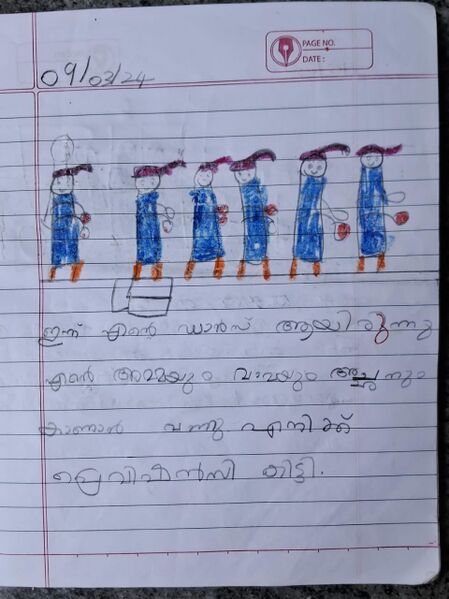 PAGE NO.
DATE:
09/03/24
ഇന്ന് എന്റെ ഡാൻസ് ആയിരുന്നു
എന്റെ അമ്മയും വാവയും അച്ഛനും
കാണാൻ വന്നു എനിക്ക്
കിട്ടി.